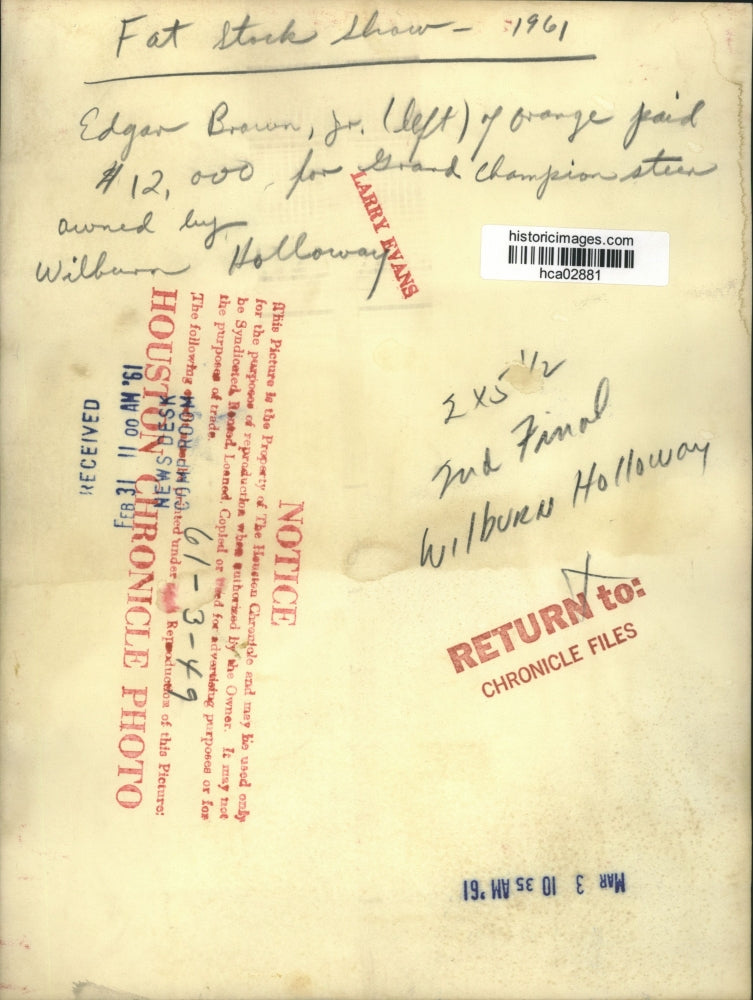 Fat Stock Show - 1961
Edgar Brown, Jr. (left) of Orange paid
$12,000 for Grand Champion steer
owned by
Wilburn Holloway
LARRY EVANS
historicimages.com
hca02881
2 x 5 1/2
2nd Final
Wilburn Holloway
RETURN to:
CHRONICLE FILES
NOTICE
This Picture is the Property of The Houston Chronicle and may be used only
for the purposes of reproduction when authorized by the Owner. It may not
be Syndicated, Rented, Loaned, Copied or Used for advertising purposes or for
the purposes of trade.
The following must be printed under Reproduction of this Picture:
HOUSTON CHRONICLE PHOTO
61-3-49
NEWS DESK
RECEIVED
FEB 31 11 00 AM '61
MAR 3 10 35 AM '61